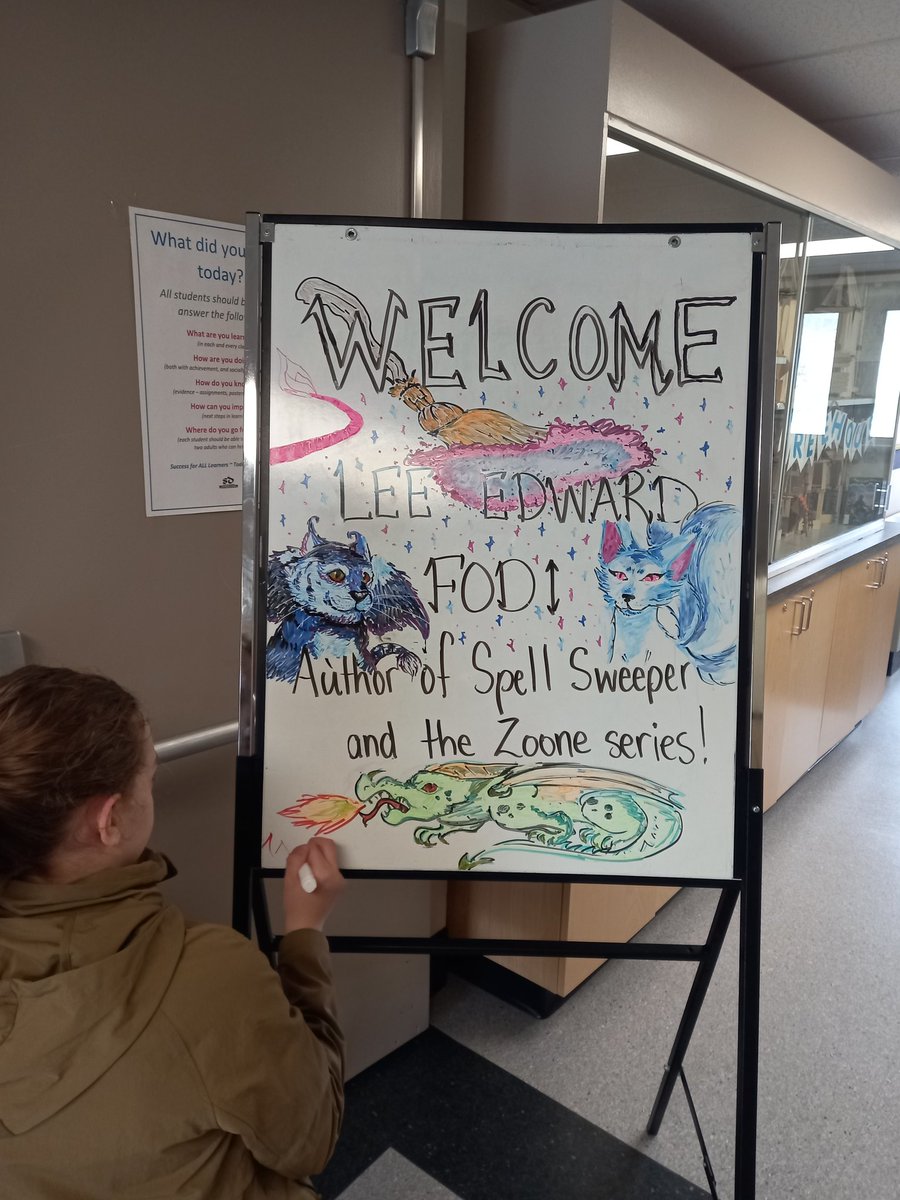 What did you
today?
All students should b
answer the follo
What are you lear
(in each and every cla
How are you doi
(both with achievement, and socially
How do you kno
(evidence – assignments, poster
How can you imp
(next steps in learn
Where do you go f
(each student should be able t
two adults who can he
Success for ALL Learners™ Tod
SD
WELCOME
LEE EDWARD
FODI
Author of Spell Sweeper
and the Zoone series!
RE HOU